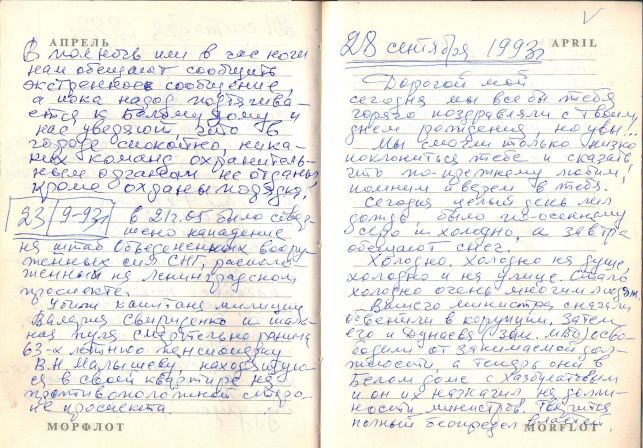 АПРЕЛЬ
В полночь или в час ночи
нам обещают сообщить
экстренное сообщение,
а пока народ подтягива-
ется к Белому дому и
нас уверяют, что в
городе спокойно, ника-
ких команд охранитель-
ным органам не отданы
кроме охраны порядка!
23 9-93г. в 21ч. 05 было совер-
шено нападение
на штаб Объединенных воору-
женных сил СНГ, располо-
женный на Ленинградском
проспекте.
Убили капитана милиции
Валерия Свириденко и шаль-
ная пуля смертельно ранила
63-х летнюю пенсионерку
В.Н. Малышеву, находившую-
ся в своей квартире на
противоположной сторо-
не проспекта.
МОРФЛОТ
28 сентября 1993г.
APRIL
Дорогой мой
сегодня мы все бы тебя
горячо поздравляли с твоим
днем рождения, но увы!..
Мы смогли только низко
поклониться тебе и сказать
что по-прежнему любим,
помним и верим в тебя.
Сегодня целый день лил
дождь, было по-осеннему
серо и холодно, а завтра
обещают снег.
Холодно. Холодно на душе,
холодно и на улице. Стало
холодно очень многим людям.
Вашего министра сначала
обвинили в корупции. Затем
его и Дунаева (зам. МВД) осво-
бодили от занимаемой дол-
жности, а теперь они в
Белом доме с Хазбулатовым
и он их назначил на долж-
ности министров. Творится
полный беспредел власти.
MORFLOT